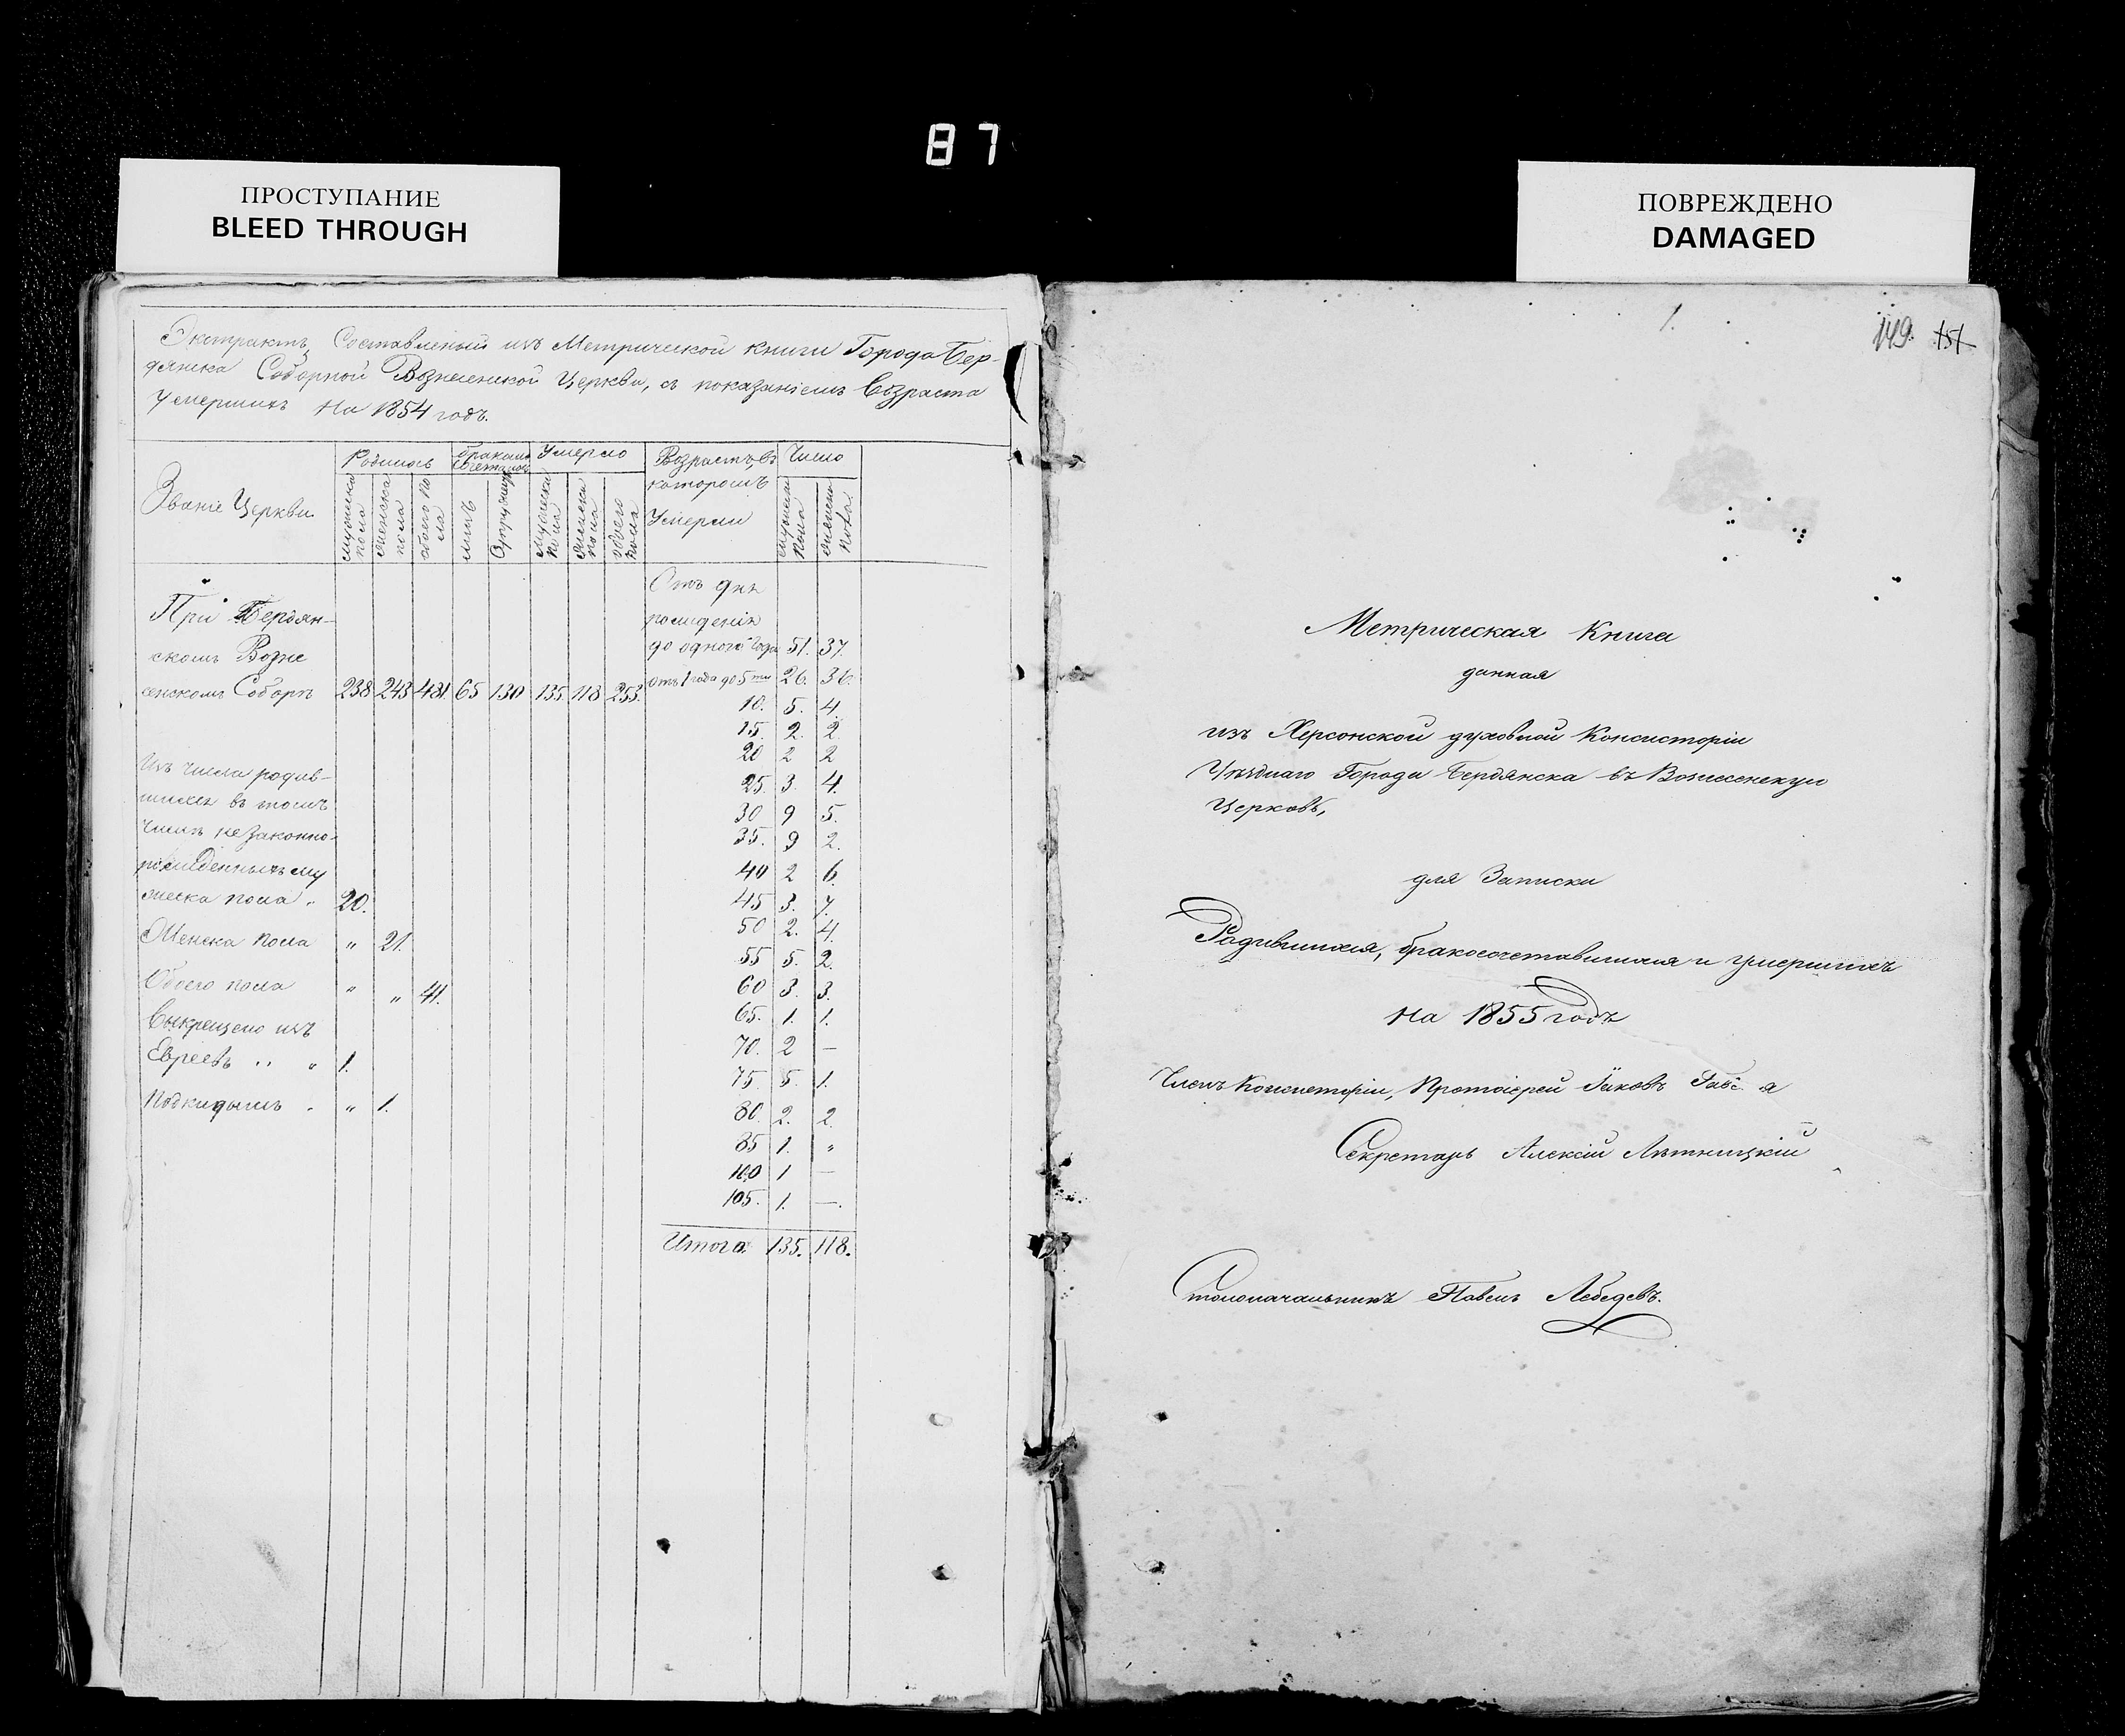 87
ПРОСТУПАНИЕ
BLEED THROUGH
ПОВРЕЖДЕНО
DAMAGED
Экстрактъ Составленый изъ Метрической книги Города Бер-
дянска Соборной Вознесенской Церкви, съ показаніемъ Возраста
умершихъ На 1854 годъ.
Званіе Церкви
Родилось
мужеска пола
женска пола
обоего пола
бракомъ сочеталось
лицъ
Умерло
мужеска пола
женска пола
обоего пола
Возрастъ, въ
которомъ
Умерли
Число
мужеска пола
женска пола
При Бердян-
скомъ Возне
сенскомъ Соборѣ 238 243 481 65 130 135 118 253.
Изъ числа родив-
шихся въ томъ
числѣ незаконно-
рожденныхъ му
жеска пола " 20.
Женска пола " 21.
Обоего пола " " 41.
Выкрещено изъ
Евреевъ " " 1.
Подкидышъ " " 1.
Отъ дня
рожденія
до одного года 51. 37.
отъ 1 года до 5ти 26. 36.
10. 5. 4.
15. 2. 2.
20 2 2
25. 3. 4.
30 9 5.
35. 9 2.
40 2 6.
45 3. 7.
50 2. 4.
55 5. 2.
60 3. 3.
65. 1. 1.
70. 2 —
75. 5. 1.
80. 2. 2.
85 1. "
100 1 —
105. 1. —.
Итого 135. 118.
1.
149. 151
Метрическая Книга
данная
изъ Херсонской духовной Консисторіи
Уѣзднаго Города Бердянска въ Вознесенскую
Церковь,
для Записки
Родившихся, бракосочетавшихся и умершихъ
На 1855 годъ
Членъ Консисторіи, Протоіерей Іаковъ
Секретарь Алексій Лѣтницкій
Столоначальникъ Павелъ Лебедевъ.